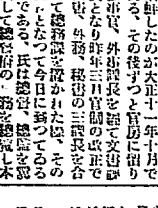 任したのが大正十一年十月で
る、その後ずつと官房に留り
事官、外事課長を經て文書課
となり昨年三月官制の改正で
書、外務、秘書の三課長を合
て總務課を置かれた際、その
となつて今日に到つてゐる
である、氏は總督、總監を
して總督府の 務を總覽し本